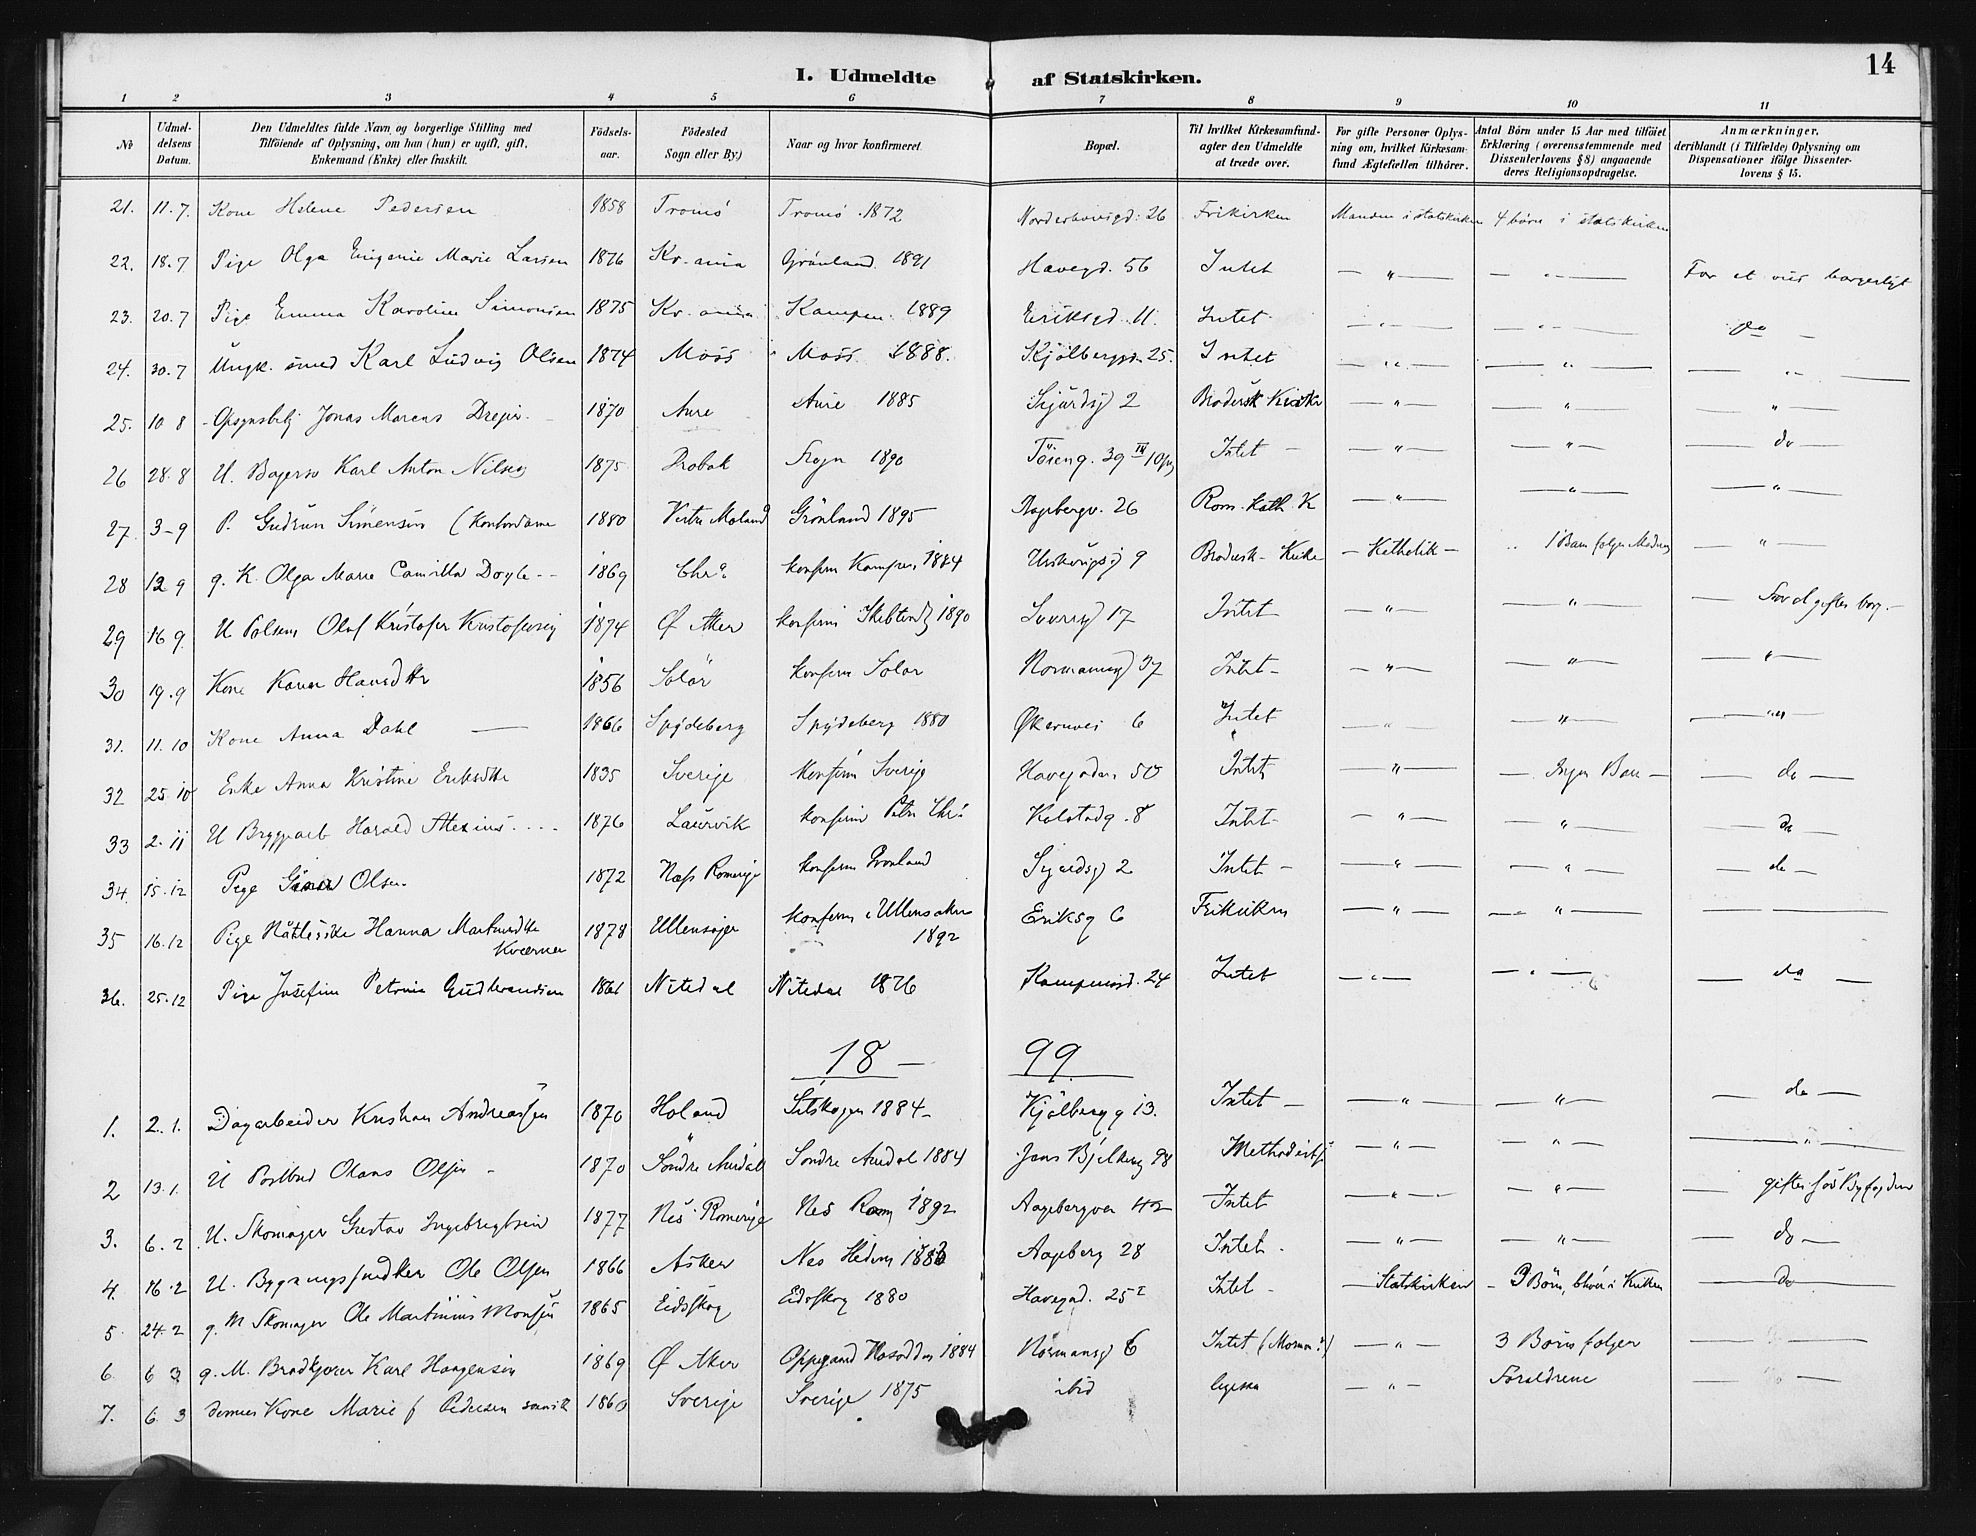 14
I. Udmeldte af Statskirken.
1 2 3 4 5 6 7 8 9 10 11
No
Udmel-
delsens
Datum.
Den Udmeldtes fulde Navn og borgerlige Stilling med
Tilföiende af Oplysning, om han (hun) er ugift, gift,
Enkemand (Enke) eller fraskilt.
Födsels-
aar.
Födested
Sogn eller By.)
Naar og hvor konfirmeret.
Bopæl.
Til hvilket Kirkesamfund-
agter den Udmeldte
at træde over.
For gifte Personer Oplys-
ning om, hvilket Kirkesam-
fund Ægtefællen tilhörer.
Antal Börn under 15 Aar med tilföiet
Erklæring (overensstemmende med
Dissenterlovens § 8) angaaende
deres Religionsopdragelse.
Anmærkninger,
deriblandt (i Tilfælde) Oplysning om
Dispensationer ifölge Dissenter-
lovens § 15.
21. 11.7. Kone Helene Pedersen 1858 Tromsö Tromsö 1872 26 Frikirken Manden i statskirken 4 börn i statskirken
22. 18.7 Pige Olga Eugenie Marie Larsen 1876 Kr.ania Grönland 1891 Havegd. 56 Intet — " — — " — For at vies borgerligt
23. 20.7 Pige Emma Karoline Simonsen 1875 Kr.ania Kampen 1889 Eriksgd. 11. Intet — " — — " — do —
24. 30.7 Ungk. smed Karl Ludvig Olsen 1874 Moss Moss 1888. Kjölbergg. 25. Intet — " — — " — — " —
25. 10 8 Jonas Marcus 1870 Aure Aure 1885 Sigurdsg 2 Brodersk Kirke — " — — " — — " —
26 28.8 U. Karl Anton Nilsen 1875 Drobak Frogn 1890 Töieng. 39 IV Intet — — " — — " — — do —
27. 3-9 P. Gudrun Simensen (Kontordame 1880 Vestre Moland Grönland 1895 Aagebergv. 26 Rom. Kath. K — " — — " — — " —
28 12 9 g. K. Olga Marie Camilla Doyle 1869 Chra. konfirm Kampen 1884 9 Brodersk- Kirke — Katholik — 1 Barn folger Moderen — " —
29 16 9. U Olaf Kristofer Kristofersen 1874 Ø Aker konfirm 1890 17 Intet — " — — " — — For at giftes borg. —
30 19.9 Kone Karen Hansdtr 1856 Solör konfirm Solor Normannsg 37 Intet — — " — — " — — " —
31. 11.10 Kone Anna Dahl — 1866 Spydeberg Spydeberg 1880 Økernvei 6 Intet — " — — " — — " —
32 25.10 Enke Anna Kristine Eriksdtr 1835 Sverige konfirm Sverige Havegaden 50 Intet — " — — Ingen Barn — — do —
33 2.11 U Bryggearb Harald 1876 Laurvik konfirm Petri Chra. Kolstadg. 8 Intet — — " — — " — — do —
34. 15.12 Pige Olsen 1872 Næs Romerige konfirm Gronland Sigurdsg 2 Intet — — " — — " — — do —
35 16.12 Pige Hanna Martinsdtr
Kværner 1878 Ullensager konfirm i Ullensaker
1892 Eriksg 6 Frikirken — " — — " — —
36. 25.12 Pige Josefine Petronie Gudbrandsen 1861 Nitedal Nitedal 1876 24 Intet — " — — " — — do —
18 — 99.
1. 2.1. Dagarbeider Kristian Andreassen 1870 Holand Setskogen 1884 — Kjölbergg 13. Intet — — " — — " — — do —
2 13.1. U Postbud Olaus Olsen — 1870 Söndre Aurdal Sondre Aurdal 1884 Jens Bjelkesg 98 Methodist — " — — " — — " —
3. 6.2 U. Skomager Gustav Ingebrigtsen 1877 Nes Romerige Nes Rom 1892 Aagebergvei 42 Intet — " — — " — — giftes for Byfogden
4. 16.2 U. Bygningssnedker Ole Olsen 1866 Asker Nes Hedem Aageberg 28 Intet. — " — — " — — do —
5. 24.2 g. M Skomager Ole Martinius Monsen 1865 Eidsskog Eidsskog 1880 Havegad. 25 Intet — — Statskirken — 3 Börn, bliver i Kirken — do —
6. 6 3 g. M. Karl Haagensen 1869 Ø Aker Oppegaard 1884 Normansg 6 Intet (Mormon) — " — 3 Börn folger —
7. 6 3 dennes Kone Marie f Pedersen 1860 Sverige Sverige 1875 ibid ligesaa — " — Foraldrene —